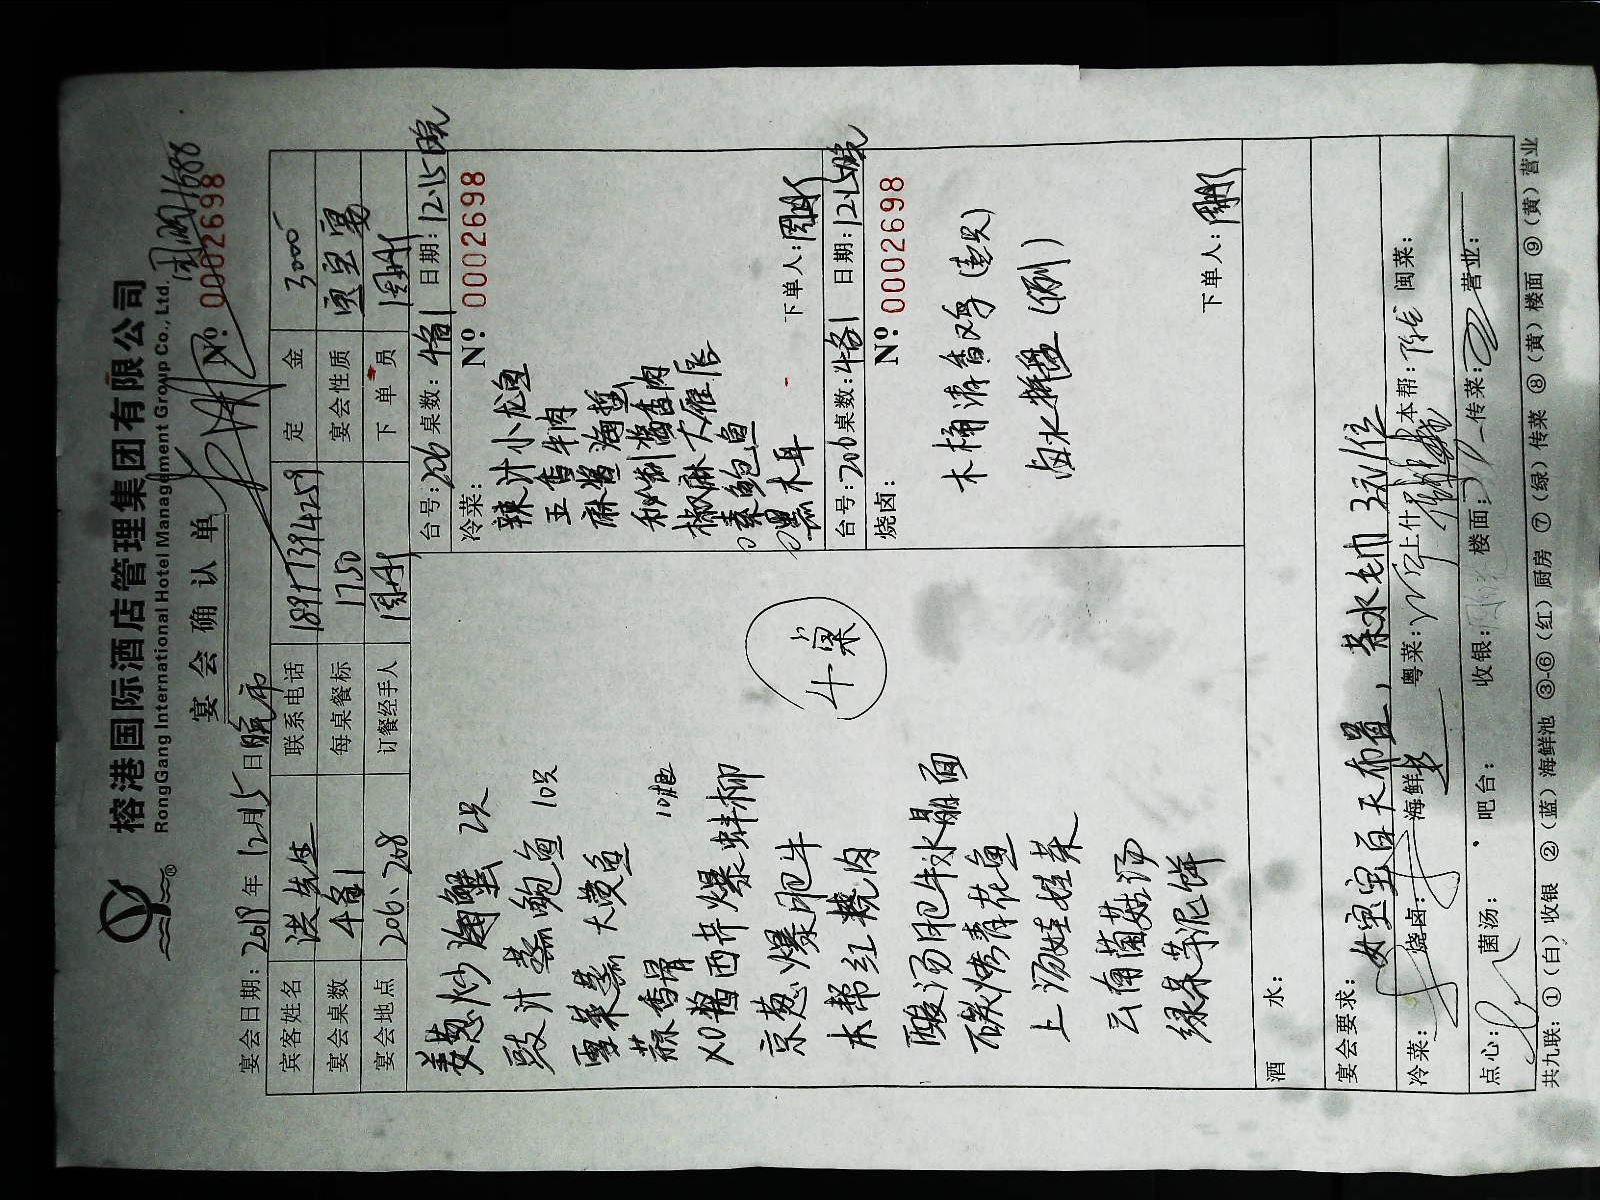 榕港国际酒店管理集团有限公司
RongGang International Hotel Management Group Co., Ltd.
宴会确认单
№: 0002698
宴会日期: 2019 年 12月15 日 晚市
宾客姓名 洪先生 联系电话 定金 3000
宴会桌数 4备1 每桌餐标 1750 宴会性质 宝宝宴
宴会地点 206、208 订餐经手人 下单员
姜葱炒海蟹 2只
豉汁蒸鲍鱼 10只
雪菜蒸大黄鱼
蒜香骨 10根
XO酱西芹爆蚌柳
京葱爆肥牛
本帮红烧肉
酸汤肥牛水晶面
碳烤青花鱼
上汤娃娃菜
云南菌菇汤
绿茶芋泥饼
4桌
台号: 206 桌数: 4备1 日期: 12.15晚
冷菜: № 0002698
辣汁小龙虾
五香牛肉
麻酱海蜇
秘制酱香肉
椒麻大雁
鲍鱼
黑木耳
下单人:
台号: 206 桌数: 4备1 日期: 12.15晚
烧卤: № 0002698
木桶清香鸡 (整只)
卤水拼盘 (例)
下单人:
酒水:
宴会要求: 女宝宝百天布置, 茶水毛巾 3元/位
冷菜: 烧卤: 海鲜 粤菜: 上什 本帮: 闽菜:
点心: 菌汤: 吧台: 收银: 楼面: 传菜: 营业:
共九联: ①(白)收银 ②(蓝)海鲜池 ③-⑥(红)厨房 ⑦(绿)传菜 ⑧(黄)楼面 ⑨(黄)营业